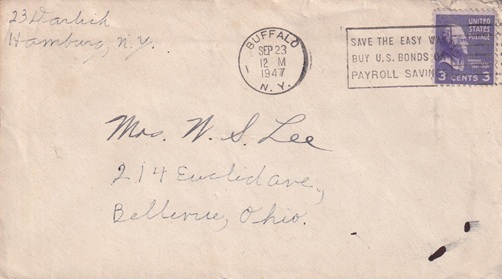 23 Darlich
Hamburg, N.Y.
BUFFALO
SEP 23
12 M
1947
N.Y.
1
SAVE THE EASY
BUY U.S. BONDS
PAYROLL
UNITED
STATES
POSTAGE
3 CENTS 3
Mrs. W. S. Lee
214 Euclid ave.,
Bellevue, Ohio.